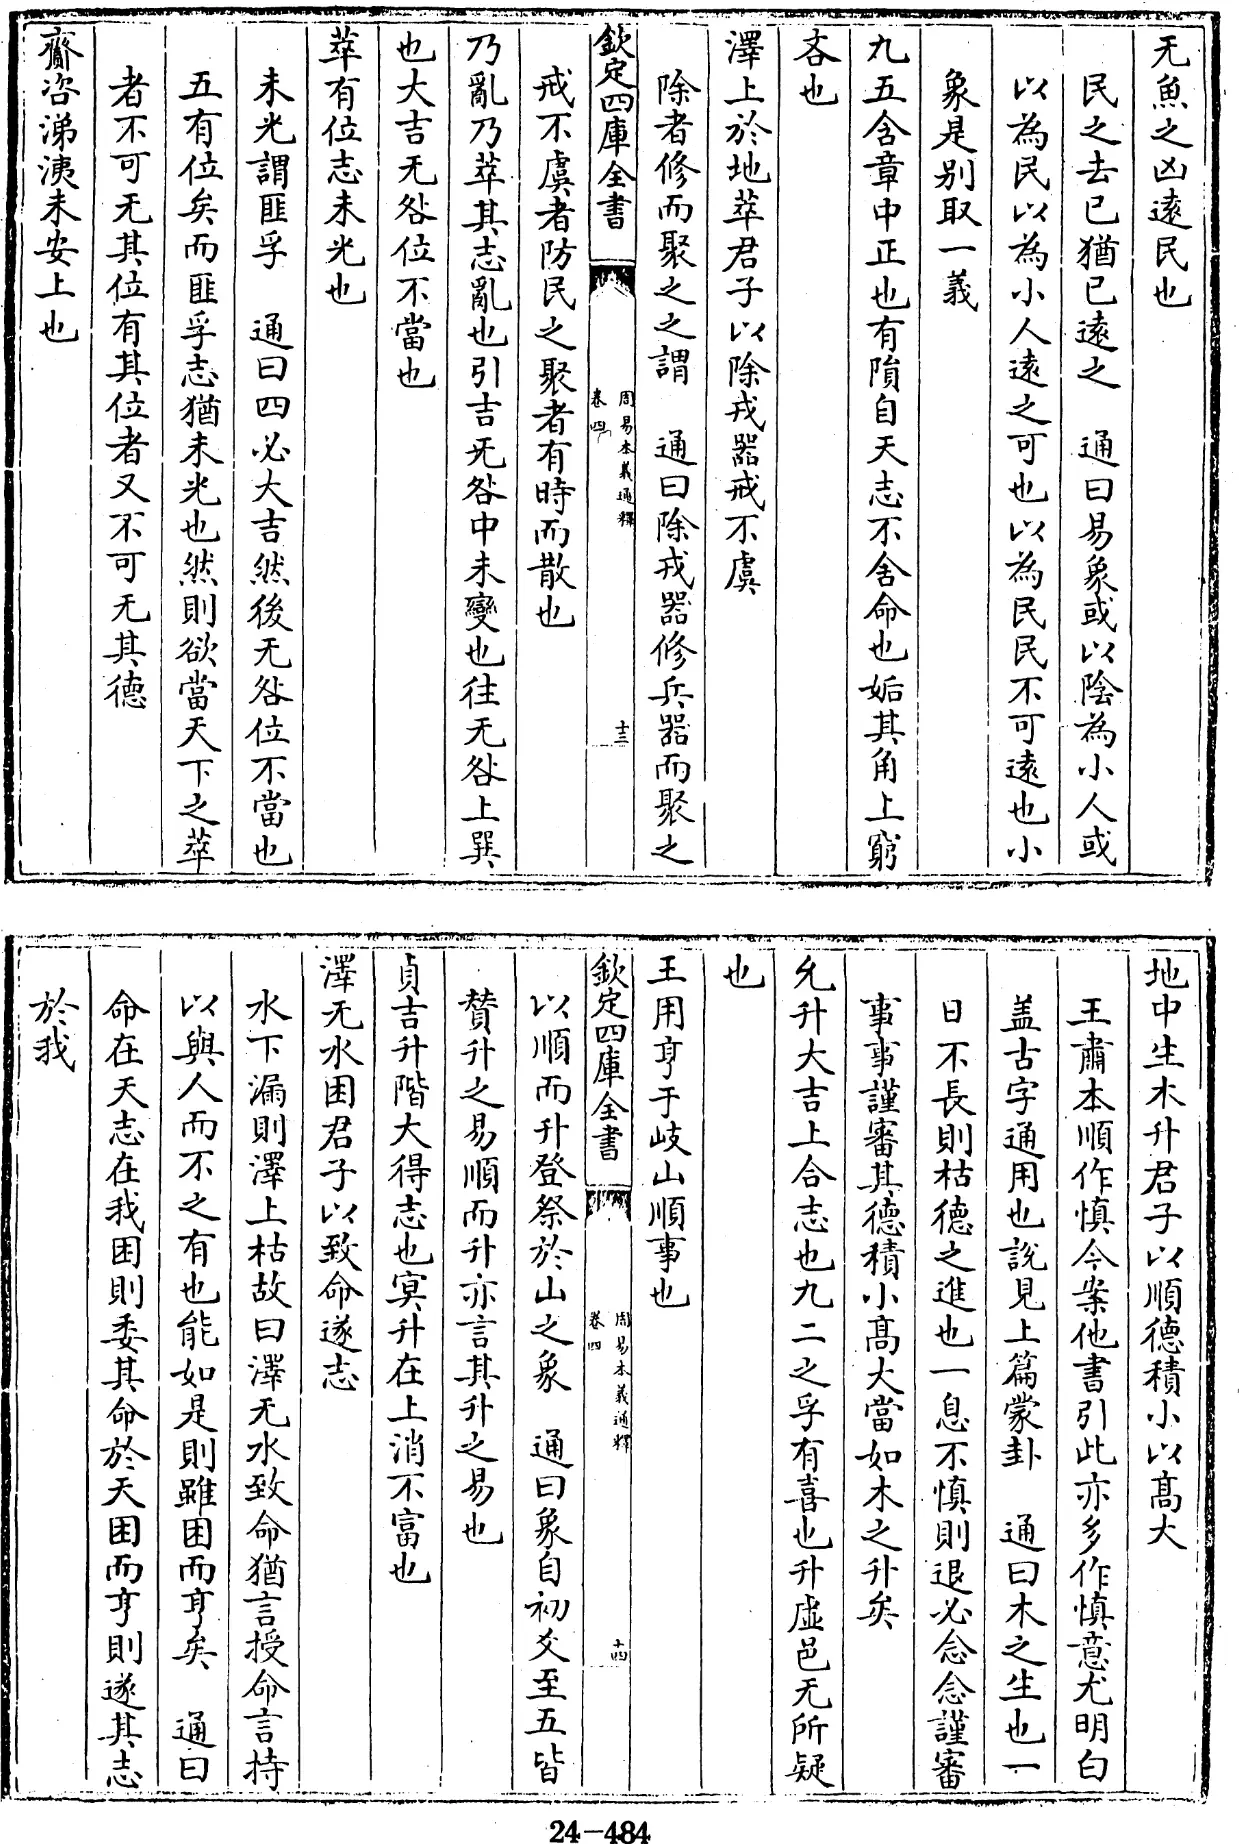 无魚之凶遠民也
民之去已猶已遠之　通曰易象或以陰為小人或
以為民以為小人遠之可也以為民民不可遠也小
象是别取一義
九五含章中正也有隕自天志不舍命也姤其角上窮
吝也
澤上於地萃君子以除戎器戒不虞
除者修而聚之之謂　通曰除戎器修兵器而聚之
欽定四庫全書
周易本義通釋
卷四
十三
戒不虞者防民之聚者有時而散也
乃亂乃萃其志亂也引吉无咎中未變也往无咎上巽
也大吉无咎位不當也
萃有位志未光也
未光謂匪孚　通曰四必大吉然後无咎位不當也
五有位矣而匪孚志猶未光也然則欲當天下之萃
者不可无其位有其位者又不可无其德
齎咨涕洟未安上也
地中生木升君子以順德積小以髙大
王肅本順作慎今案他書引此亦多作慎意尤明白
盖古字通用也説見上篇蒙卦　通曰木之生也一
日不長則枯德之進也一息不慎則退必念念謹審
事事謹審其德積小髙大當如木之升矣
允升大吉上合志也九二之孚有喜也升虛邑无所疑
也
王用亨于岐山順事也
欽定四庫全書
周易本義通釋
卷四
十四
以順而升登祭於山之象　通曰象自初爻至五皆
賛升之易順而升亦言其升之易也
貞吉升階大得志也冥升在上消不富也
澤无水困君子以致命遂志
水下漏則澤上枯故曰澤无水致命猶言授命言持
以與人而不之有也能如是則雖困而亨矣　通曰
命在天志在我困則委其命於天困而亨則遂其志
於我
24-484